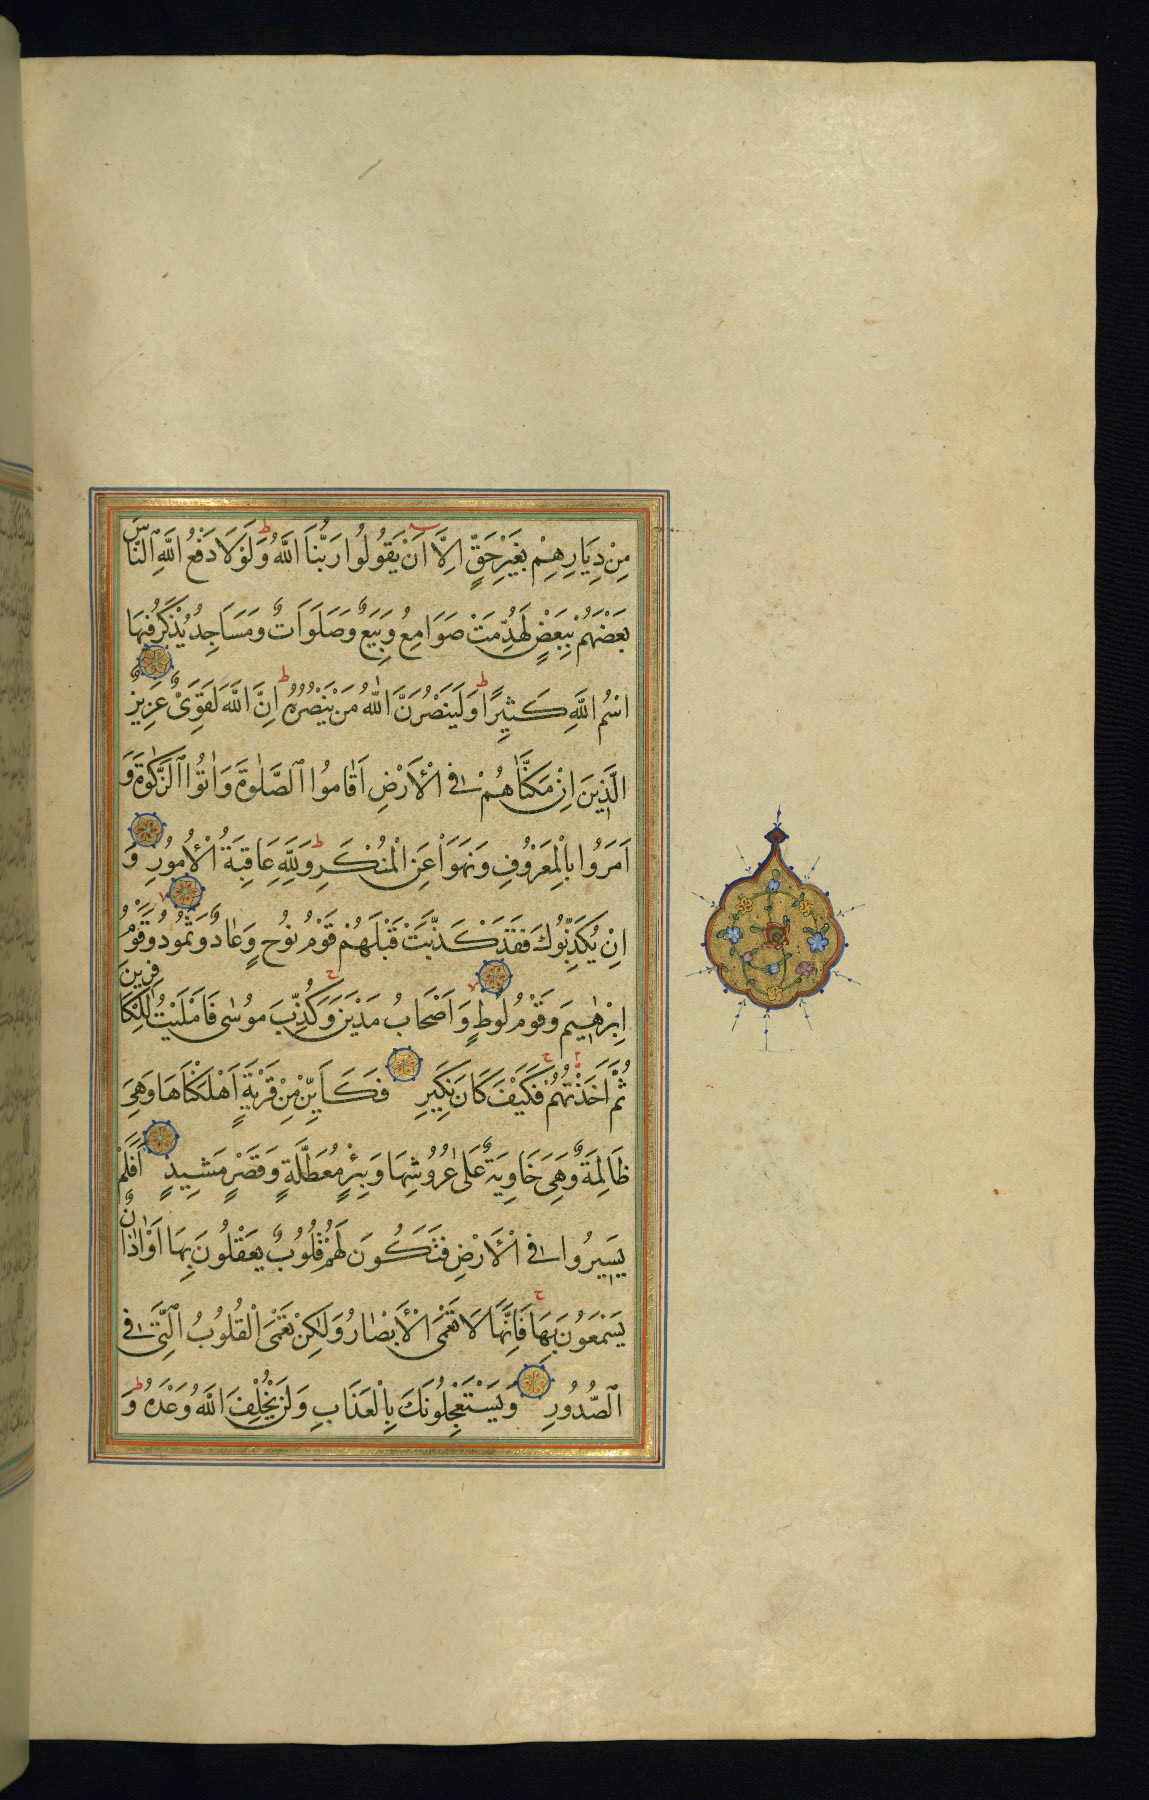 مِنْ دِيَارِهِمْ بِغَيْرِ حَقٍّ اِلَّا اَنْ يَقُولُوا رَبُّنَا اللَّهُ ط وَلَوْلَا دَفْعُ اللَّهِ النَّاسَ
بَعْضَهُمْ بِبَعْضٍ لَهُدِّمَتْ صَوَامِعُ وَبِيَعٌ وَصَلَوَاتٌ وَمَسَاجِدُ يُذْكَرُ فِيهَا
اسْمُ اللَّهِ كَثِيرًا ط وَلَيَنْصُرَنَّ اللَّهُ مَنْ يَنْصُرُهُ ط اِنَّ اللَّهَ لَقَوِيٌّ عَزِيزٌ
الَّذِينَ اِنْ مَكَّنَّاهُمْ فِي الْأَرْضِ اَقَامُوا الصَّلٰوةَ وَاٰتَوُا الزَّكٰوةَ وَ
اَمَرُوا بِالْمَعْرُوفِ وَنَهَوْا عَنِ الْمُنْكَرِ ط وَلِلَّهِ عَاقِبَةُ الْأُمُورِ وَ
اِنْ يُكَذِّبُوكَ فَقَدْ كَذَّبَتْ قَبْلَهُمْ قَوْمُ نُوحٍ وَعَادٌ وَثَمُودُ وَقَوْمُ
اِبْرٰهِيمَ وَقَوْمُ لُوطٍ وَاَصْحَابُ مَدْيَنَ وَكُذِّبَ مُوسٰى فَاَمْلَيْتُ لِلْكَافِرِينَ
ثُمَّ اَخَذْتُهُمْ ج فَكَيْفَ كَانَ نَكِيرِ فَكَاَيِّنْ مِنْ قَرْيَةٍ اَهْلَكْنَاهَا وَهِيَ
ظَالِمَةٌ وَهِيَ خَاوِيَةٌ عَلٰى عُرُوشِهَا وَبِئْرٍ مُعَطَّلَةٍ وَقَصْرٍ مَشِيدٍ اَفَلَمْ
يَسِيرُوا فِي الْأَرْضِ فَتَكُونَ لَهُمْ قُلُوبٌ يَعْقِلُونَ بِهَا اَوْ اٰذَانٌ
يَسْمَعُونَ بِهَا ج فَاِنَّهَا لَا تَعْمَى الْأَبْصَارُ وَلٰكِنْ تَعْمَى الْقُلُوبُ الَّتِي فِي
الصُّدُورِ وَيَسْتَعْجِلُونَكَ بِالْعَذَابِ وَلَنْ يُخْلِفَ اللَّهُ وَعْدَهُ ط وَ